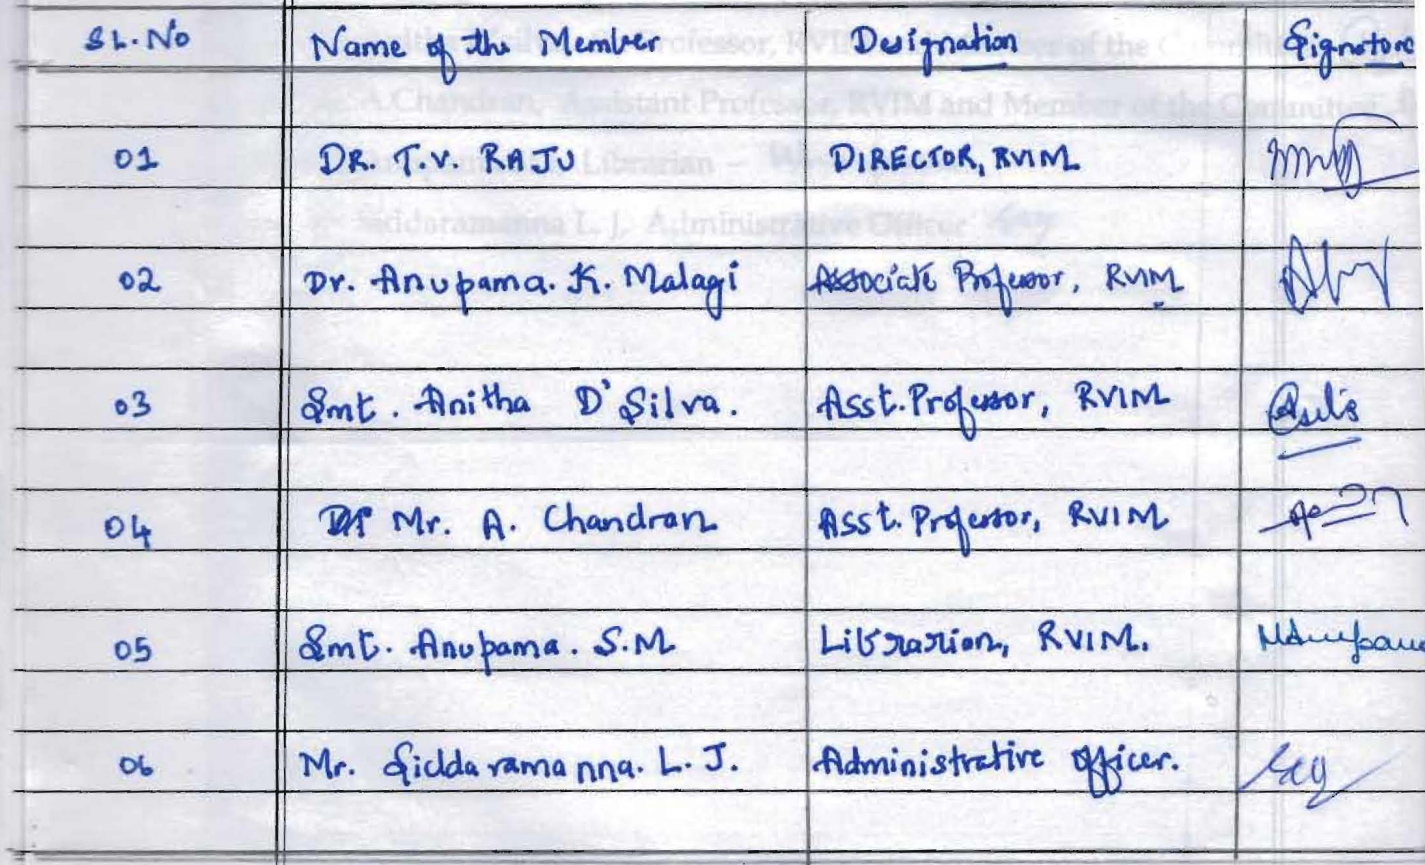 SL.No Name of the Member Designation Signature
01 DR. T.V. RAJU DIRECTOR, RVIM
02 Dr. Anupama. K. Malagi Associate Professor, RVIM
03 Smt. Anitha D'Silva. Asst. Professor, RVIM
04 Mr. A. Chandran Asst. Professor, RVIM
05 Smt. Anupama. S.M Librarian, RVIM.
06 Mr. Siddaramanna. L. J. Administrative Officer.